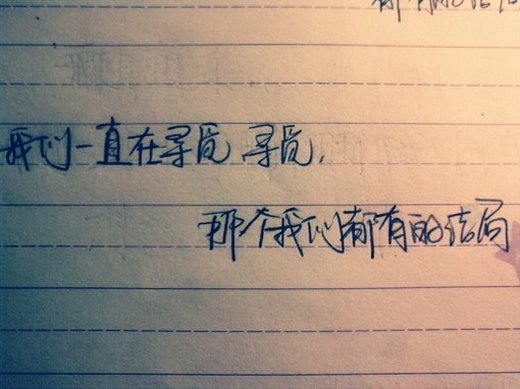 我们一直在寻觅 寻觅,
那个我们都有的结局